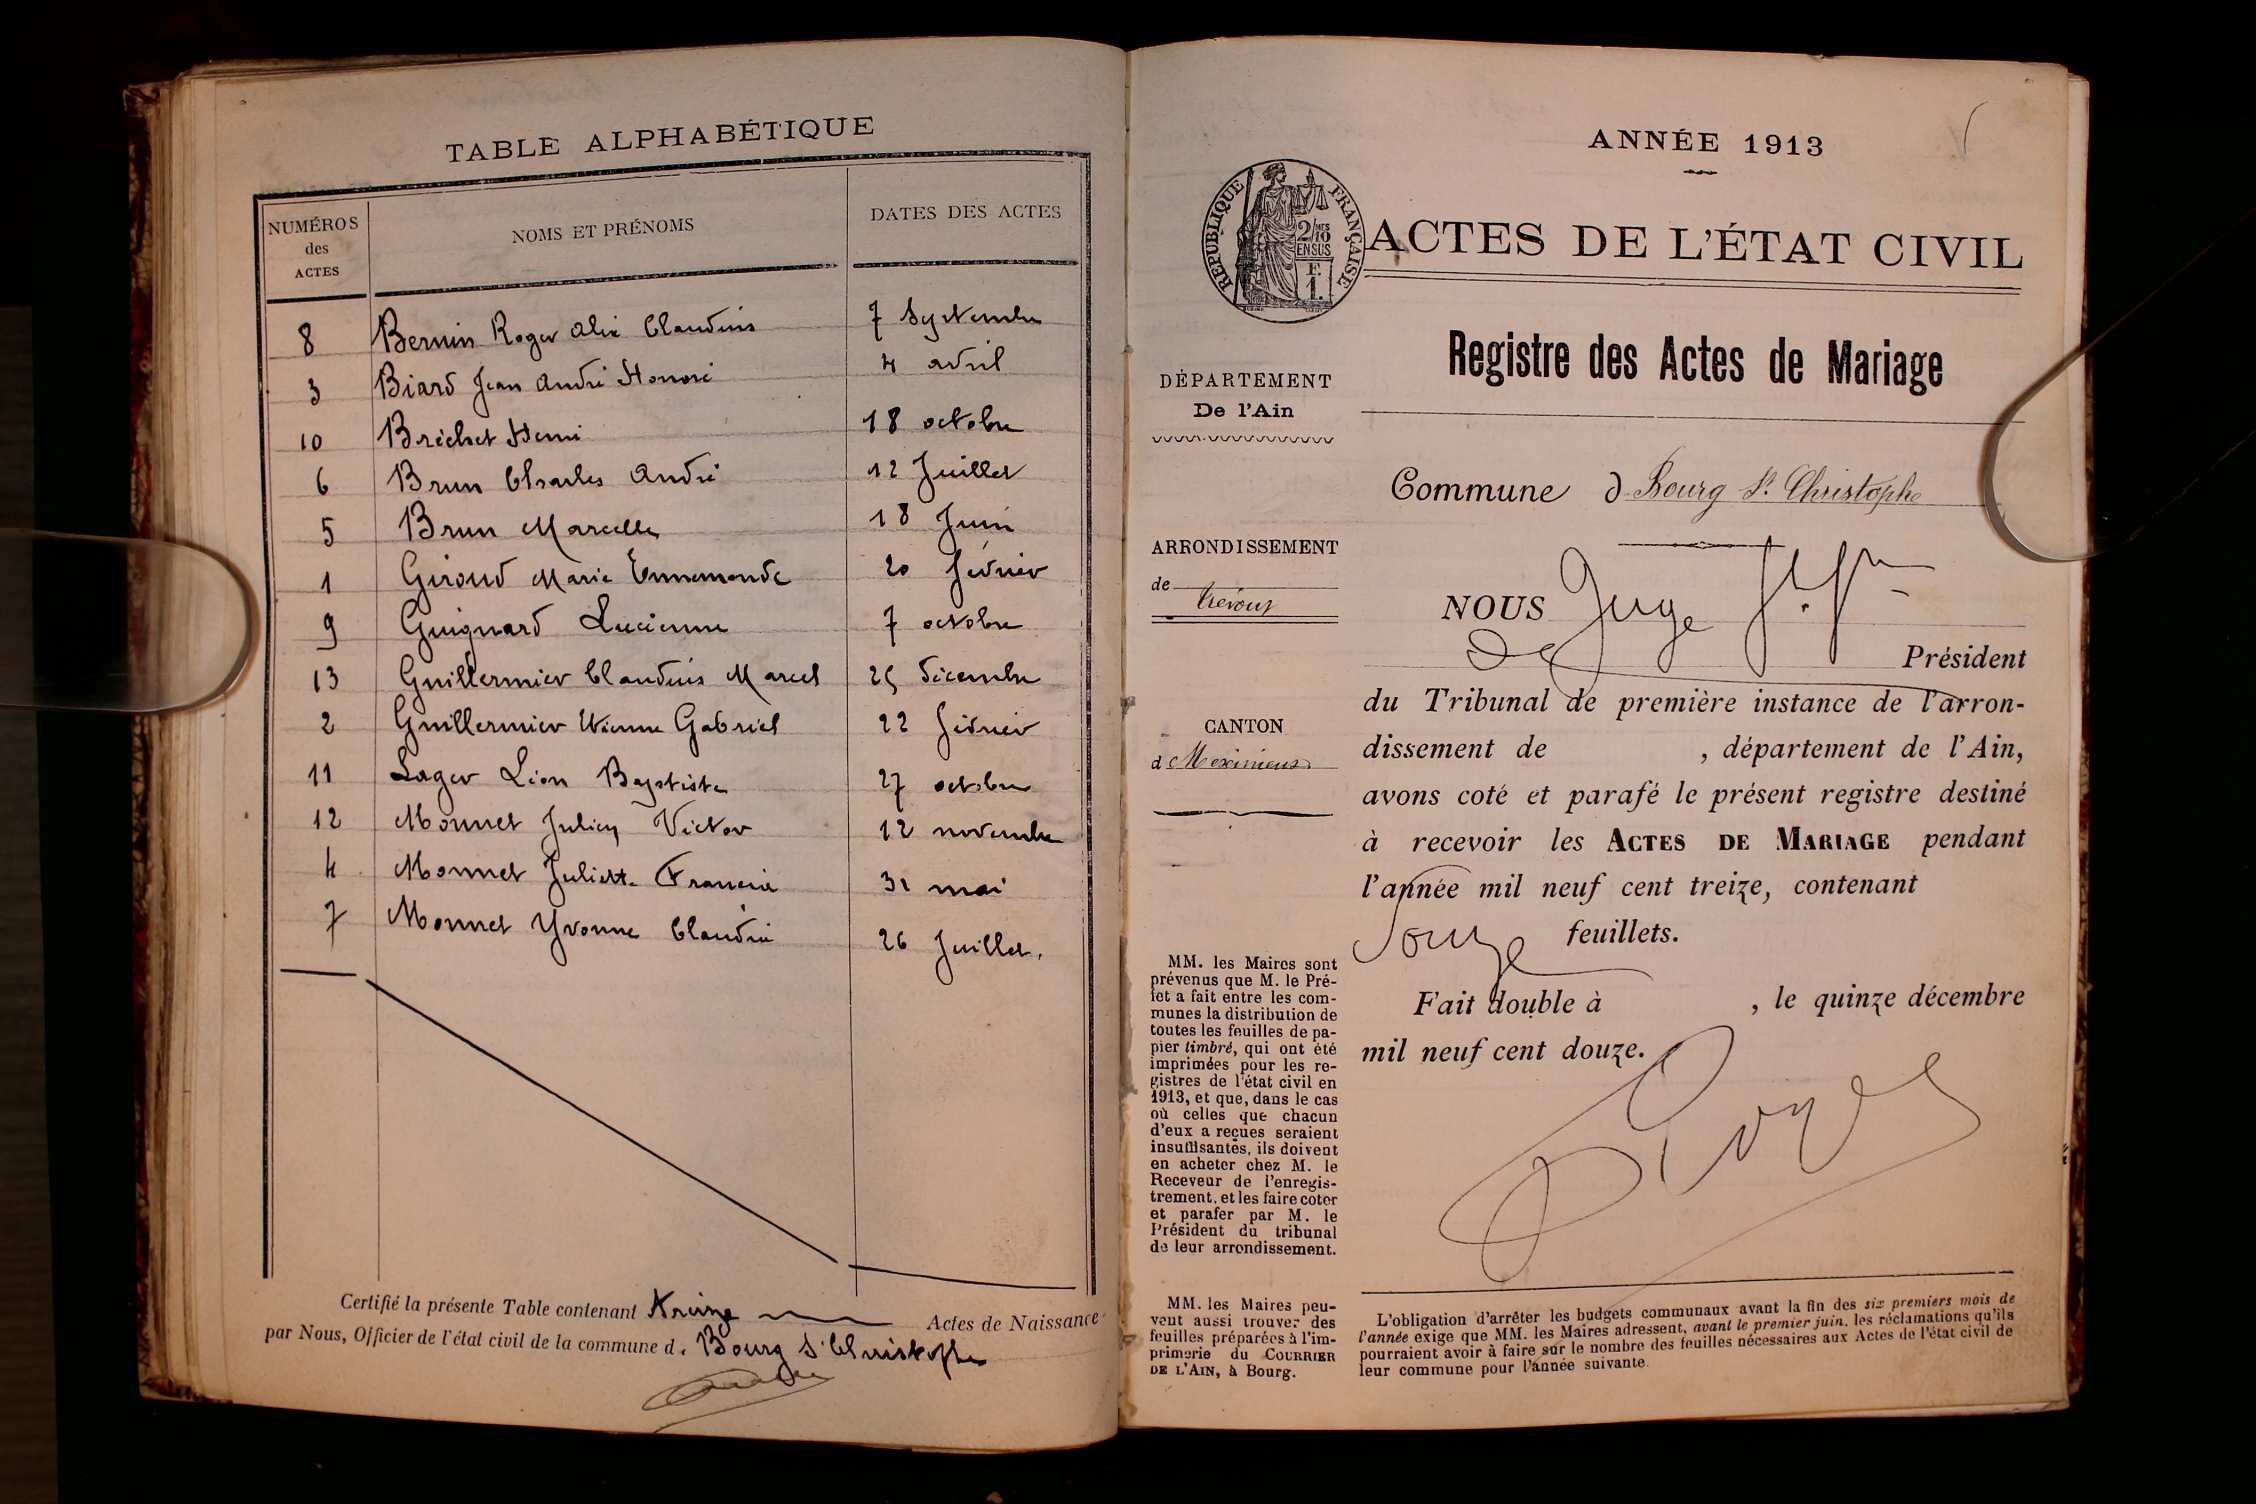 TABLE ALPHABÉTIQUE
NUMÉROS des ACTES NOMS ET PRÉNOMS DATES DES ACTES
8 Bernin Roger Claudius 7 Septembre
3 Biard Jean André Honoré 4 avril
10 Bréchet Henri 18 octobre
6 Brun Charles André 12 Juillet
5 Brun Marcelle 18 Juin
1 Giroud Marie Ennemonde 20 février
9 Guignard Lucienne 7 octobre
13 Guillermier Claudius Marcel 25 décembre
2 Guillermier Etienne Gabriel 22 février
11 Lager Léon Baptiste 27 octobre
12 Monnet Julien Victor 12 novembre
4 Monnet Juliette Francia 31 mai
7 Monnet Yvonne Claudia 26 Juillet.
Certifié la présente Table contenant treize Actes de Naissance
par Nous, Officier de l'état civil de la commune d. Bourg St Christophe
ANNÉE 1913
RÉPUBLIQUE FRANÇAISE
2/10MES
EN SUS
F.
1.
ACTES DE L'ÉTAT CIVIL
Registre des Actes de Mariage
DÉPARTEMENT
De l'Ain
Commune d Bourg St. Christophe
ARRONDISSEMENT
de Trévoux
CANTON
d Meximieux
NOUS Juge
de Président
du Tribunal de première instance de l'arron-
dissement de , département de l'Ain,
avons coté et parafé le présent registre destiné
à recevoir les ACTES DE MARIAGE pendant
l'année mil neuf cent treize, contenant
douze feuillets.
Fait double à , le quinze décembre
mil neuf cent douze.
MM. les Maires sont
prévenus que M. le Pré-
fet a fait entre les com-
munes la distribution de
toutes les feuilles de pa-
pier timbré, qui ont été
imprimées pour les re-
gistres de l'état civil en
1913, et que, dans le cas
où celles que chacun
d'eux a reçues seraient
insuffisantes, ils doivent
en acheter chez M. le
Receveur de l'enregis-
trement, et les faire coter
et parafer par M. le
Président du tribunal
de leur arrondissement.
MM. les Maires peu-
vent aussi trouver des
feuilles préparées à l'im-
primerie du COURRIER
DE L'AIN, à Bourg.
L'obligation d'arrêter les budgets communaux avant la fin des six premiers mois de
l'année exige que MM. les Maires adressent, avant le premier juin, les réclamations qu'ils
pourraient avoir à faire sur le nombre des feuilles nécessaires aux Actes de l'état civil de
leur commune pour l'année suivante.